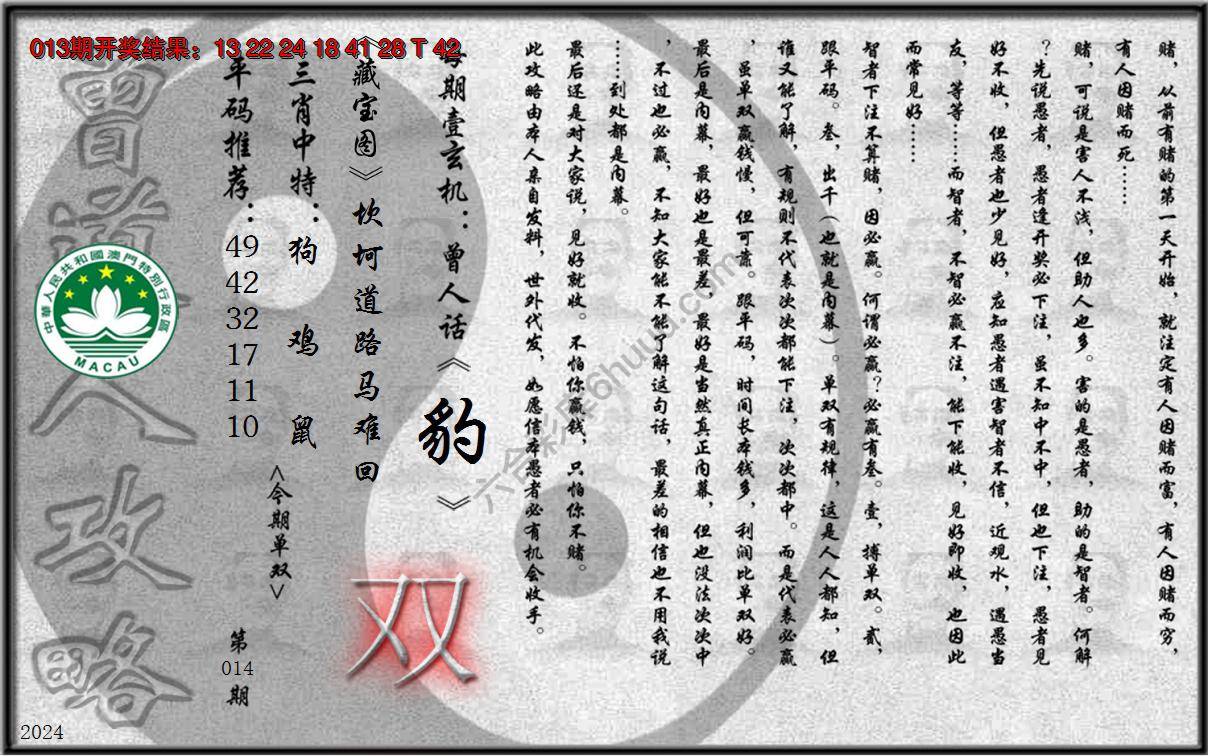 013期开奖结果：13 22 24 18 41 28 T 42
赌，从前有赌的第一天开始，就注定有人因赌而富，有人因赌而穷，
有人因赌而死……
赌，可说是害人不浅，但助人也多。害的是愚者，助的是智者。何解
？先说愚者，愚者逢开奖必下注，虽不知中不中，但也下注，愚者见
好不收，但愚者也少见好，应知愚者遇害智者不信，近观水，遇愚当
友，等等……而智者，不智必赢不注，能下能收，见好即收，也因此
而常见好……
智者下注不算赌，因必赢。何谓必赢？必赢有叁。壹，搏单双。贰，
跟平码。叁，出千（也就是内幕）。单双有规律，这是人人都知，但
谁又能了解，有规则不代表次次都能下注，次次都中。而是代表必赢
，虽单双赢钱慢，但可靠。跟平码，时间长本钱多，利润比单双好。
最后是内幕，最好也是最差，最好是当然真正内幕，但也没法次次中
，不过也必赢，不知大家能不能了解这句话，最差的相信也不用我说
……到处都是内幕。
最后还是对大家说，见好就收。不怕你赢钱，只怕你不赌。
此攻略由本人亲自发料，世外代发，如愿信本愚者必有机会收手。
每期壹玄机：曾人话《豹》
《藏宝图》坎坷道路马难回
双
三肖中特：狗 鸡 鼠
<今期单双>
平码推荐：49 42 32 17 11 10
第014期
曾道人攻略
中華人民共和國澳門特別行政區
MACAU
2024
六合彩库6huuu.com